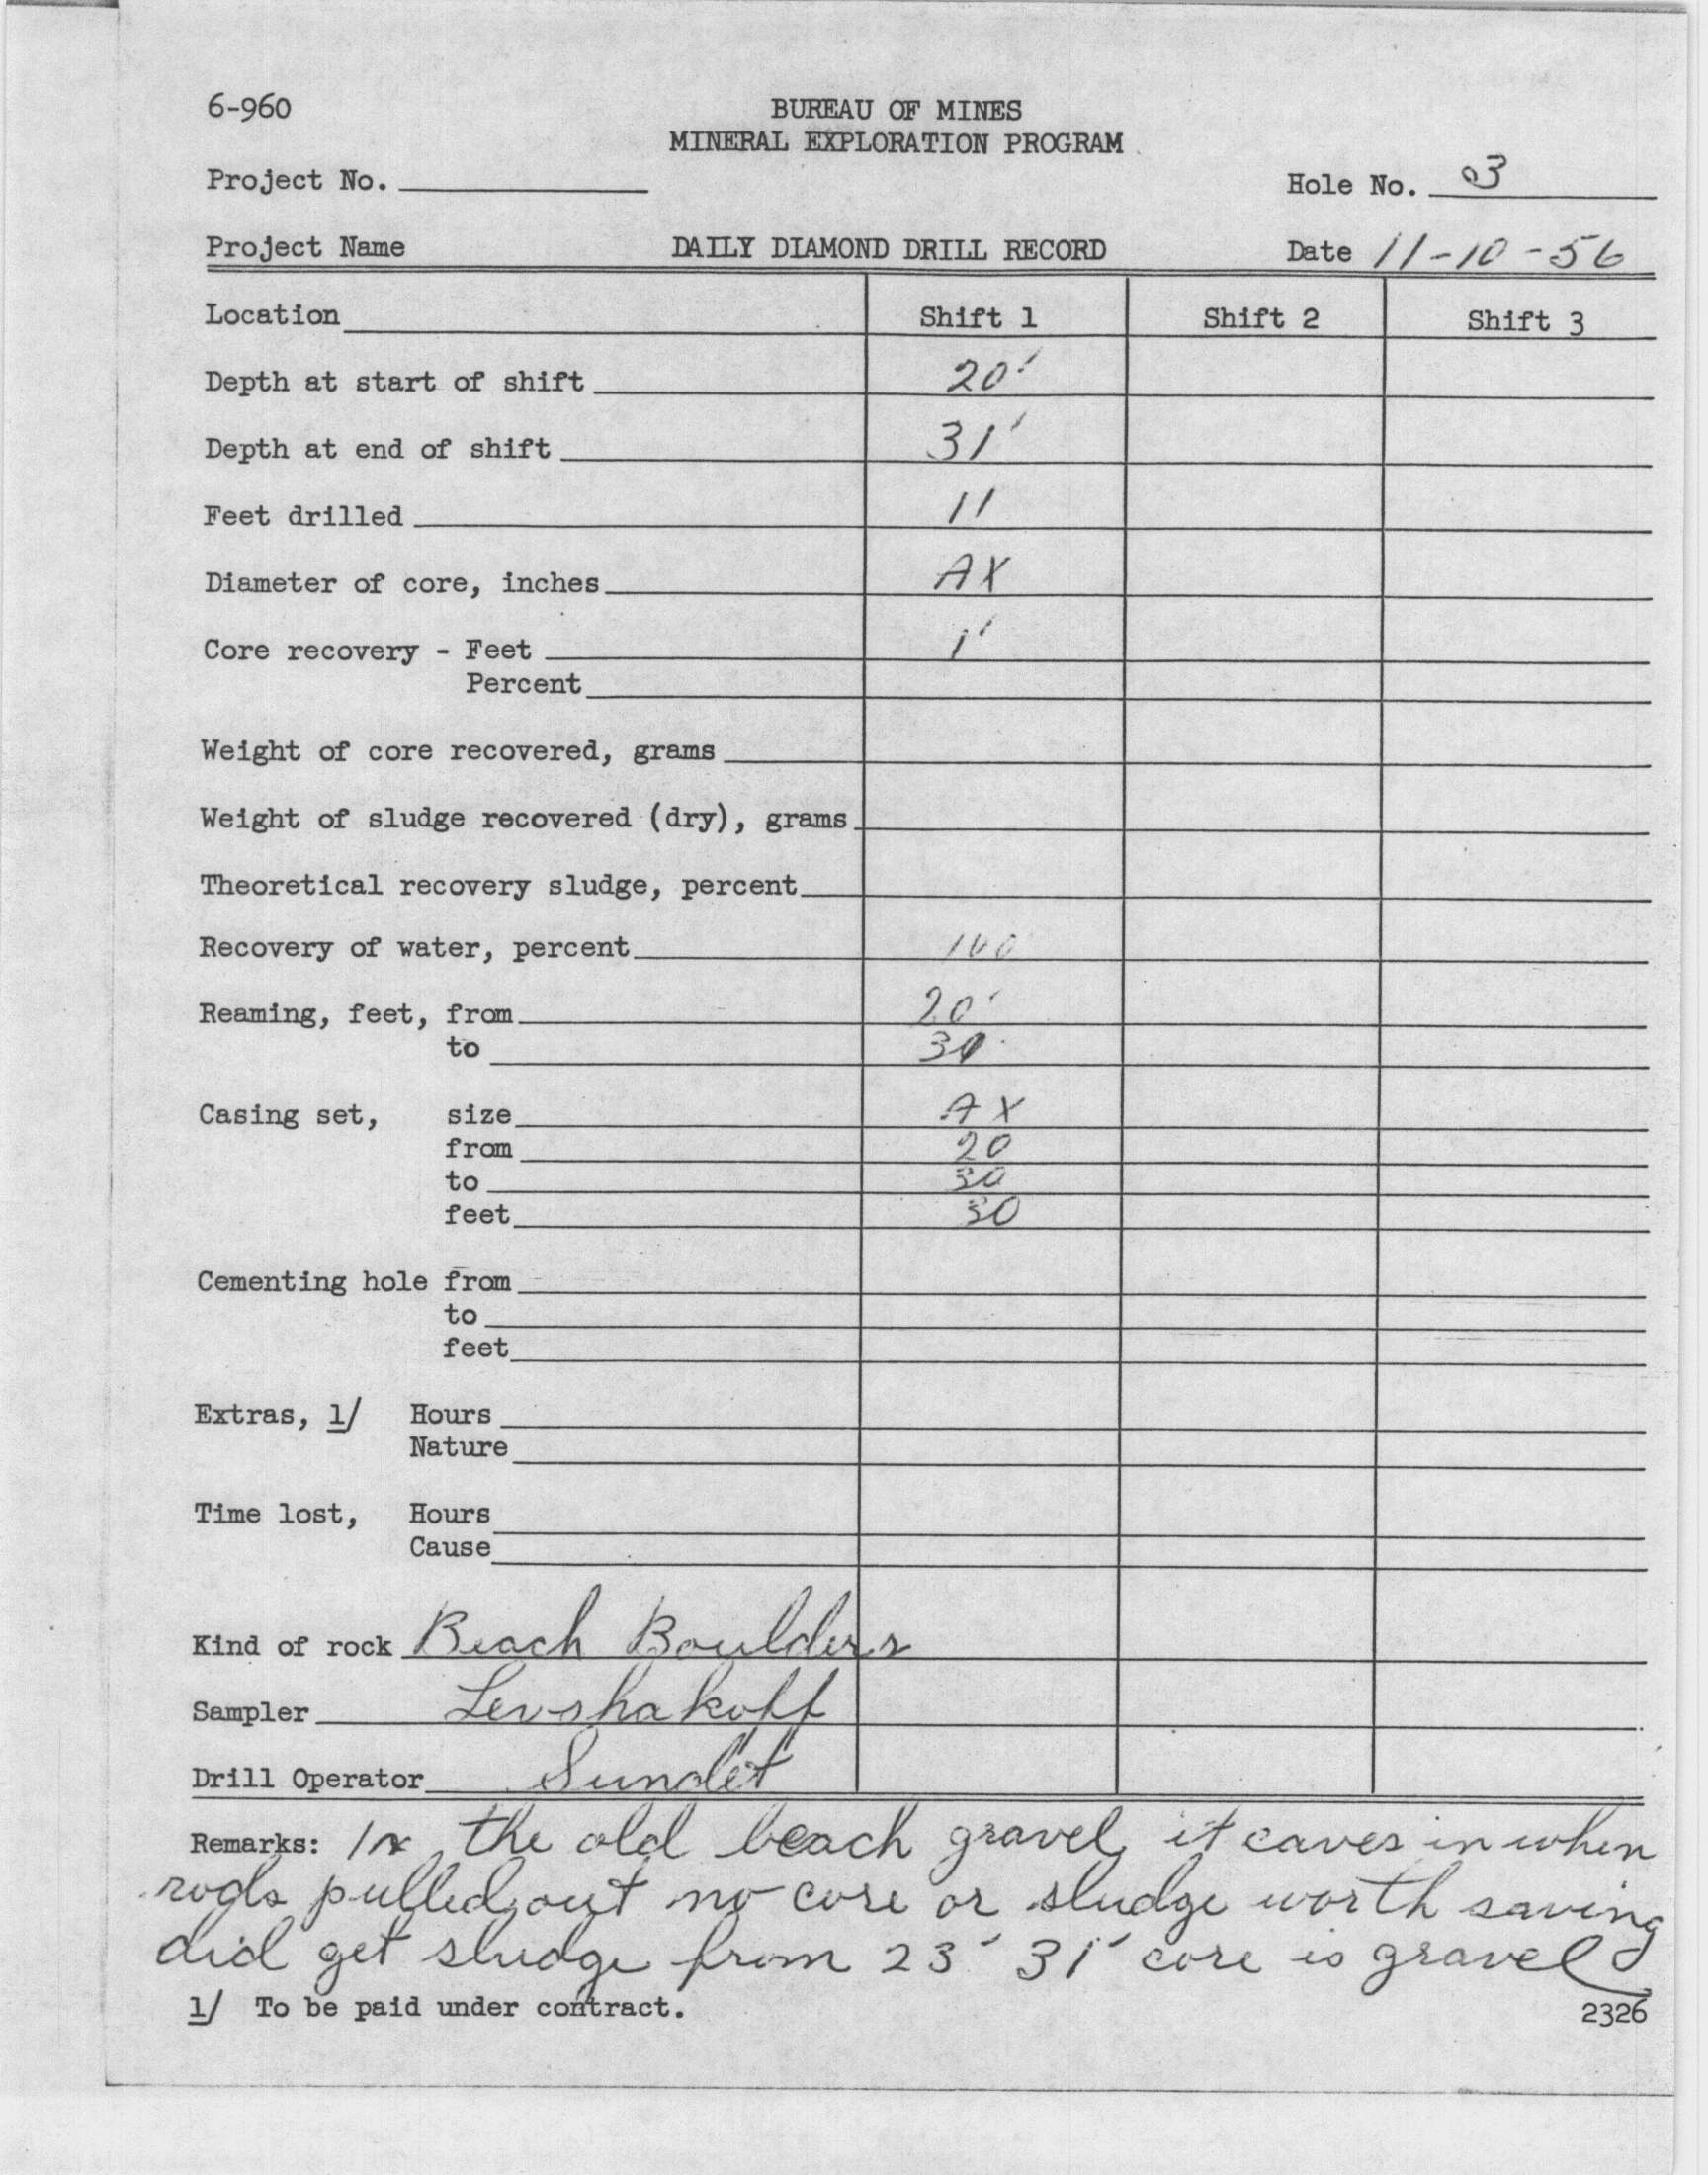 6-960
BUREAU OF MINES
MINERAL EXPLORATION PROGRAM
Project No.
Hole No. 3
Project Name DAILY DIAMOND DRILL RECORD Date 11-10-56
Location Shift 1 Shift 2 Shift 3
Depth at start of shift 20'
Depth at end of shift 31'
Feet drilled 11
Diameter of core, inches AX
Core recovery - Feet 1'
Percent
Weight of core recovered, grams
Weight of sludge recovered (dry), grams
Theoretical recovery sludge, percent
Recovery of water, percent 100
Reaming, feet, from 20'
to
Casing set, size AX
from 20
to 30
feet 30
Cementing hole from
to
feet
Extras, 1/ Hours
Nature
Time lost, Hours
Cause
Kind of rock Beach Boulders
Sampler Levshakoff
Drill Operator Sundet
Remarks: In the old beach gravel, it caves in when
rods pulled, out no core or sludge worth saving
did get sludge from 23' 31' core is gravel
1/ To be paid under contract.
2326